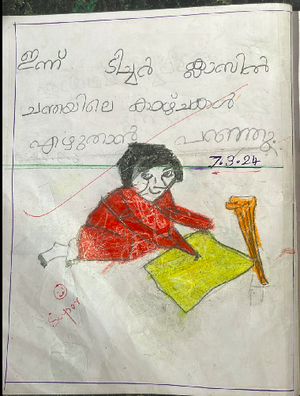 ഇന്ന് ടീച്ചർ ക്ലാസിൽ
ചന്തയിലെ കാഴ്ചകൾ
എഴുതാൻ പറഞ്ഞു.
7.3.24
Super